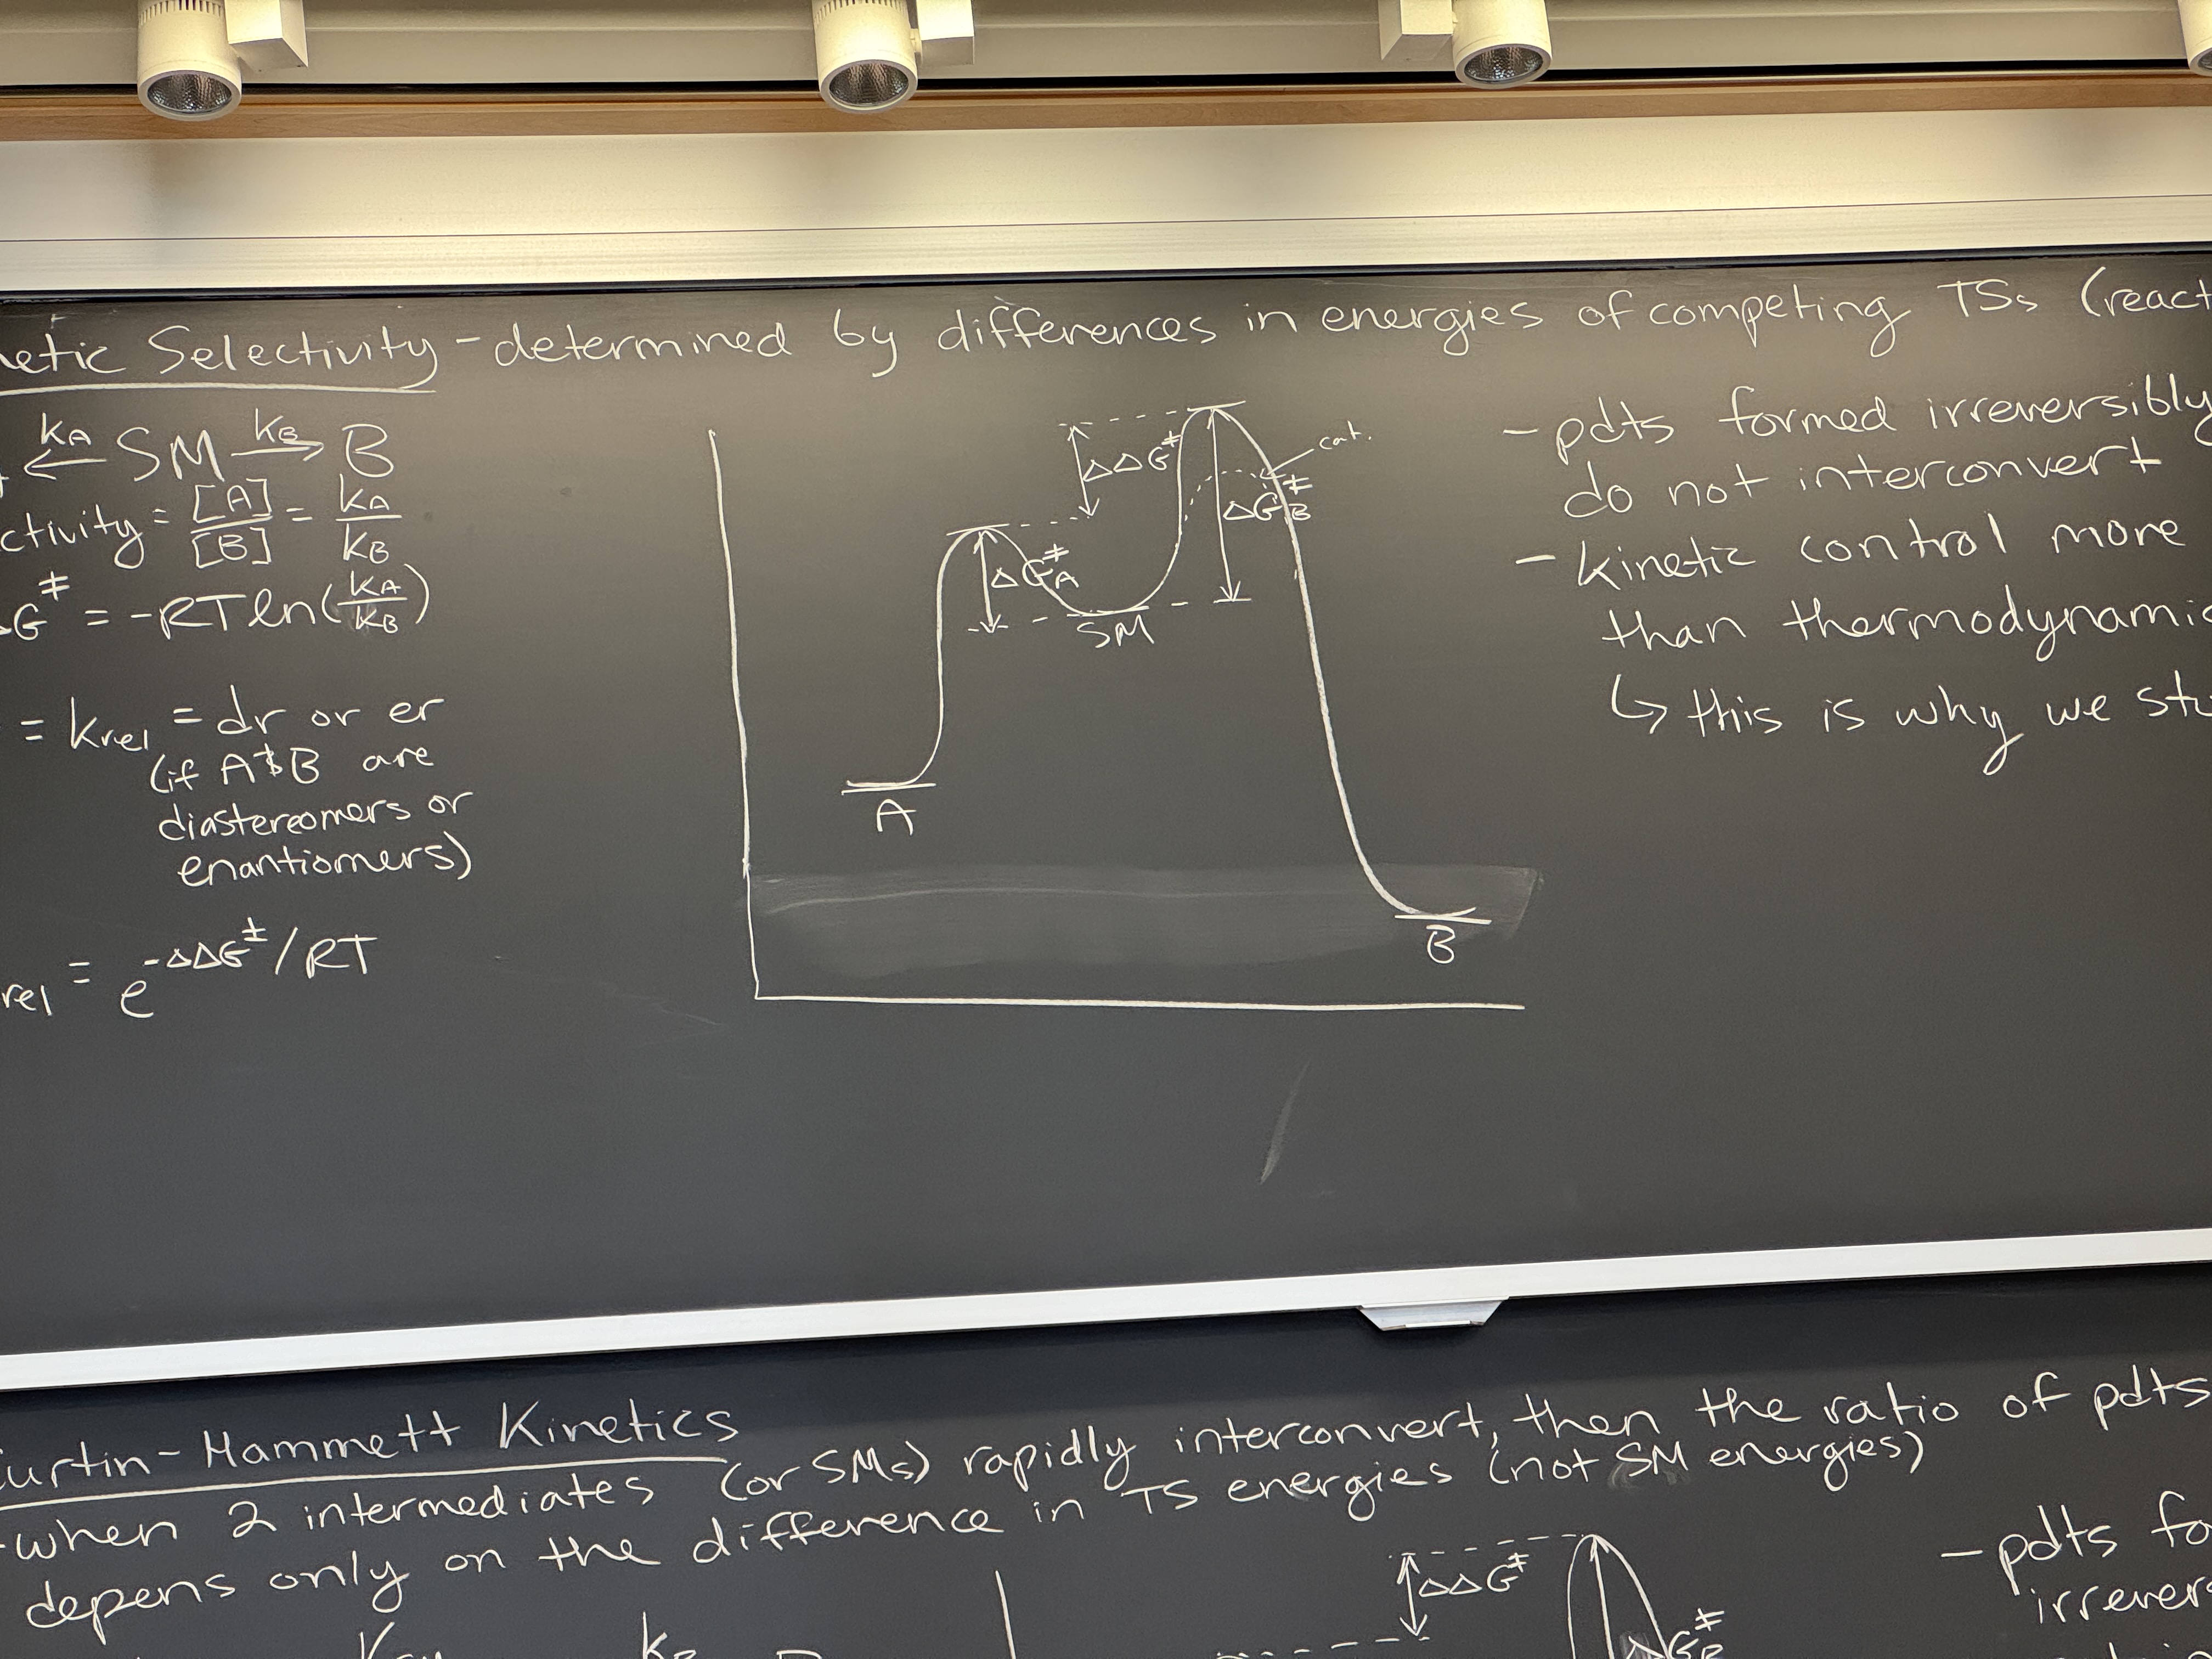 netic Selectivity - determined by differences in energies of competing TSs (react
kA SM kB B
ctivity = [A]/[B] = kA/kB
ΔG‡ = -RTln(kA/kB)
= krel = dr or er
(if A & B are
diastereomers or
enantiomers)
rel = e^-ΔΔG‡/RT
ΔΔG‡
cat.
ΔG‡B
ΔG‡A
SM
A
B
- pdts formed irreversibly
do not interconvert
- kinetic control more
than thermodynamic
↳ this is why we stu
Curtin-Hammett Kinetics
- when 2 intermediates (or SMs) rapidly interconvert, then the ratio of pdts
depens only on the difference in TS energies (not SM energies)
ΔΔG‡
- pdts fo
irrever